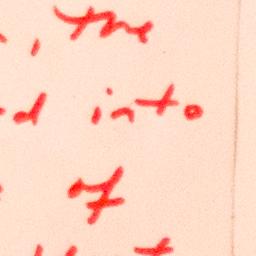 , the
d into
of